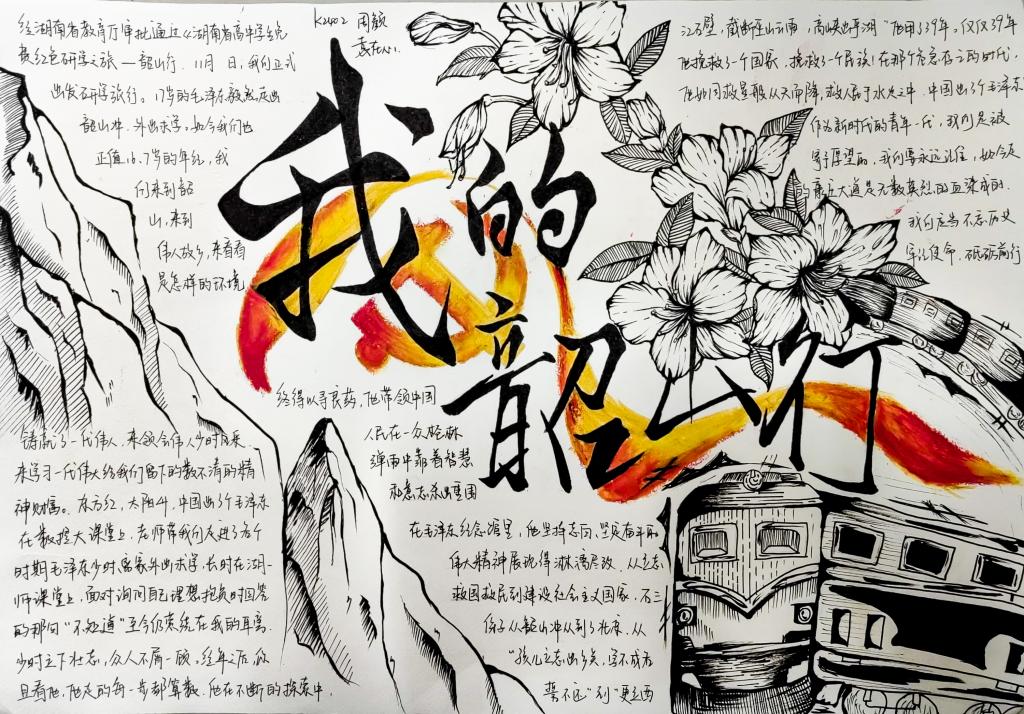 K2402 周颖
袁在心
我的韶山行
经湖南省教育厅审批通过《湖南省高中学生免
费红色研学之旅—韶山行. 11月 日, 我们正式
出发研学旅行。17岁的毛泽东毅然走出
韶山冲, 外出求学, 如今我们也
正值16.7岁的年纪, 我
们来到韶
山, 来到
伟人故乡, 来看看
是怎样的环境
铸就了一代伟人, 来领会伟人少时风采.
来学习一代伟人给我们留下的数不清的精
神财富。东方红, 太阳升, 中国出了个毛泽东
在数控大课堂上, 老师带我们走进了各个
时期毛泽东少时, 离家外出求学, 长时在湖一
师课堂上, 面对询问自己理想抱负时回答
的那句“不知道”至今仍萦绕在我的耳旁.
少时立下壮志, 众人不屑一顾, 经年之后
且看他, 他走的每一步都算数. 他在不断的探索中.
终得以寻良药, 他带领中国
人民在一众枪林
弹雨中靠着智慧
和意志杀出重围
在毛泽东纪念馆里, 他坚持志向, 坚定奋斗的
伟大精神展现得淋漓尽致. 从立志
救国救民到建设社会主义国家, 石三
伢子从韶山冲走到了北京, 从
“孩儿立志出乡关, 学不成名
誓不还”到“更立西
江石壁, 截断巫山云雨, 高峡出平湖”他用了39年, 仅仅39年
他挽救了一个国家, 拯救了一个民族! 在那个危急存亡的时代,
他如同救星般从天而降, 救人民于水火之中. 中国出了个毛泽东
作为新时代的青年一代, 我们是被
寄予厚望的, 我们要永远记住, 如今足下
的康庄大道是无数英烈的血染成的.
我们应当不忘历史
牢记使命. 砥砺前行